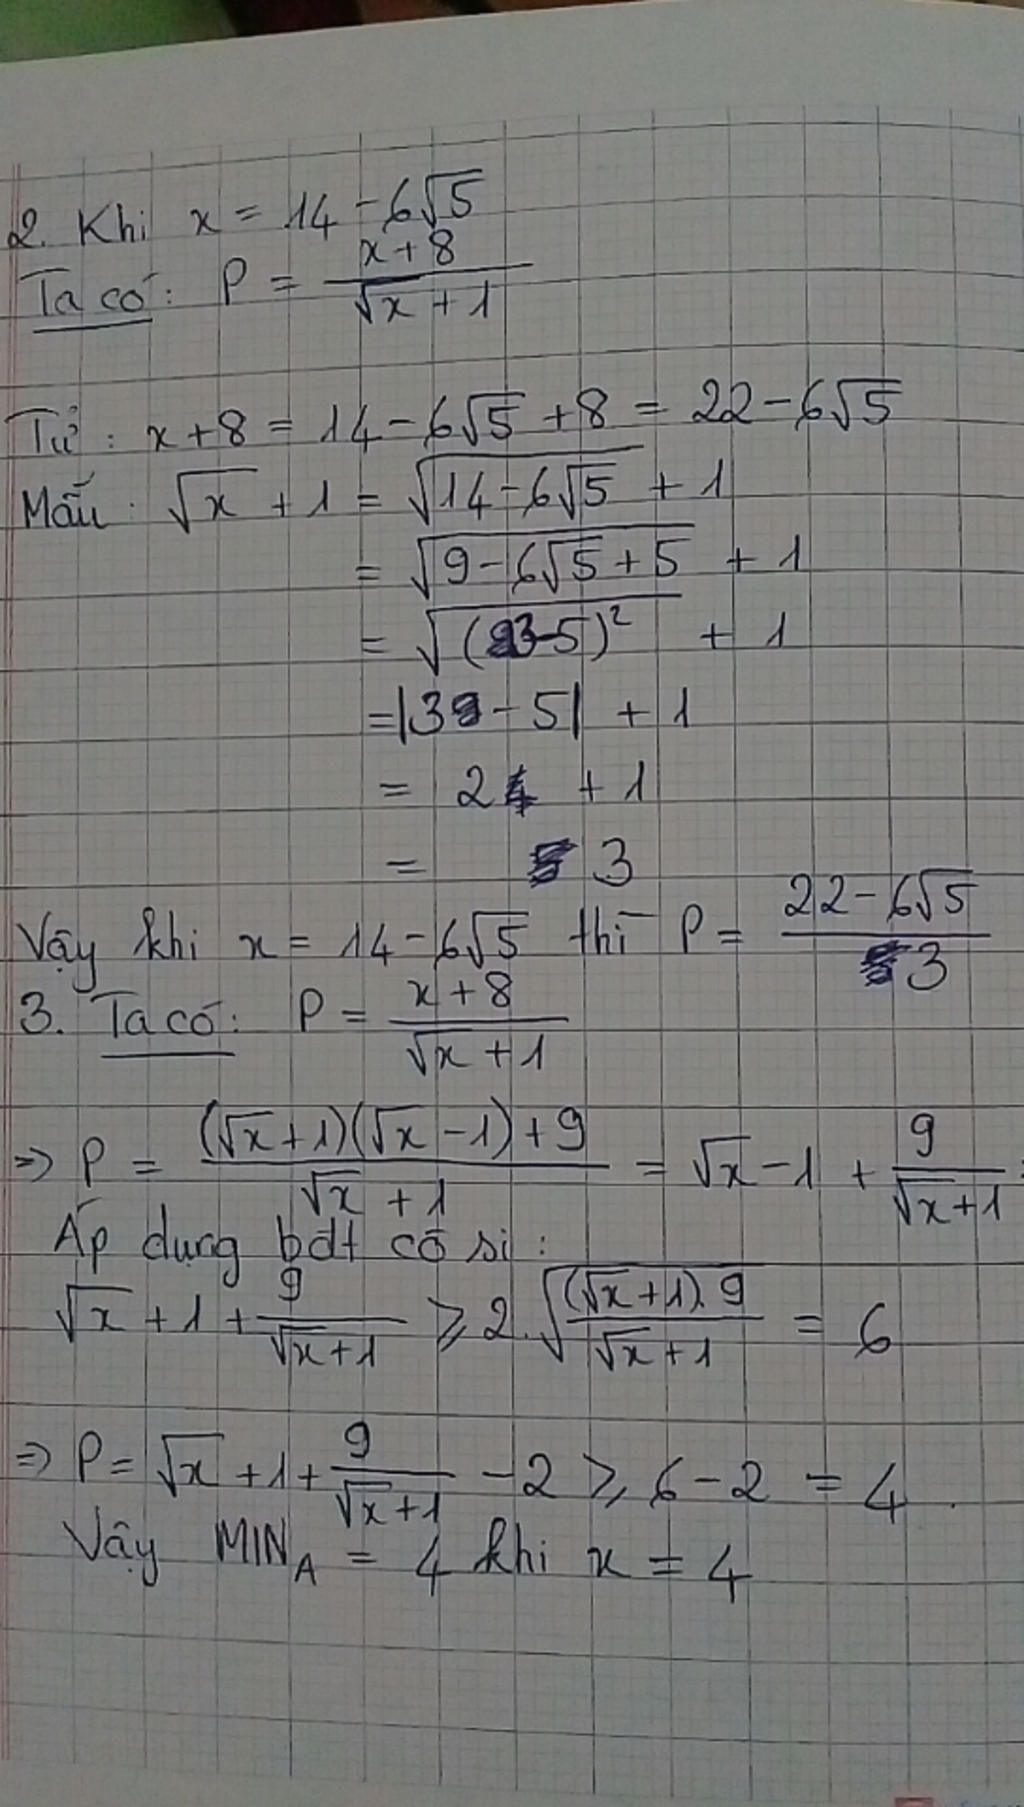 2. Khi x = 14 - 6√5
Ta có: P = (x + 8)/(√x + 1)
Tử: x + 8 = 14 - 6√5 + 8 = 22 - 6√5
Mẫu: √x + 1 = √(14 - 6√5) + 1
= √(9 - 6√5 + 5) + 1
= √((3-5)²) + 1
= |3 - 5| + 1
= 2 + 1
= 3
Vậy khi x = 14 - 6√5 thì P = (22 - 6√5)/3
3. Ta có: P = (x + 8)/(√x + 1)
=> P = ((√x + 1)(√x - 1) + 9)/(√x + 1) = √x - 1 + 9/(√x + 1)
Áp dụng bđt cô si:
√x + 1 + 9/(√x + 1) ⩾ 2.√(((√x + 1).9)/(√x + 1)) = 6
=> P = √x + 1 + 9/(√x + 1) - 2 ⩾ 6 - 2 = 4.
Vậy MIN_A = 4 khi x = 4